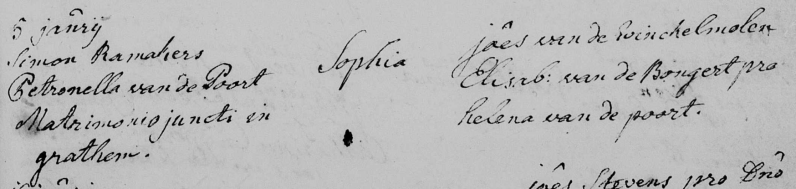 5 janurij
Simon Ramakers
Petronella van de Poort
Matrimonio juncti in
grathem.
Sophia
joês van de Winckelmolen
Elisab: van de Bongert pro
helena van de poort.
joês Stevens pro Dnô